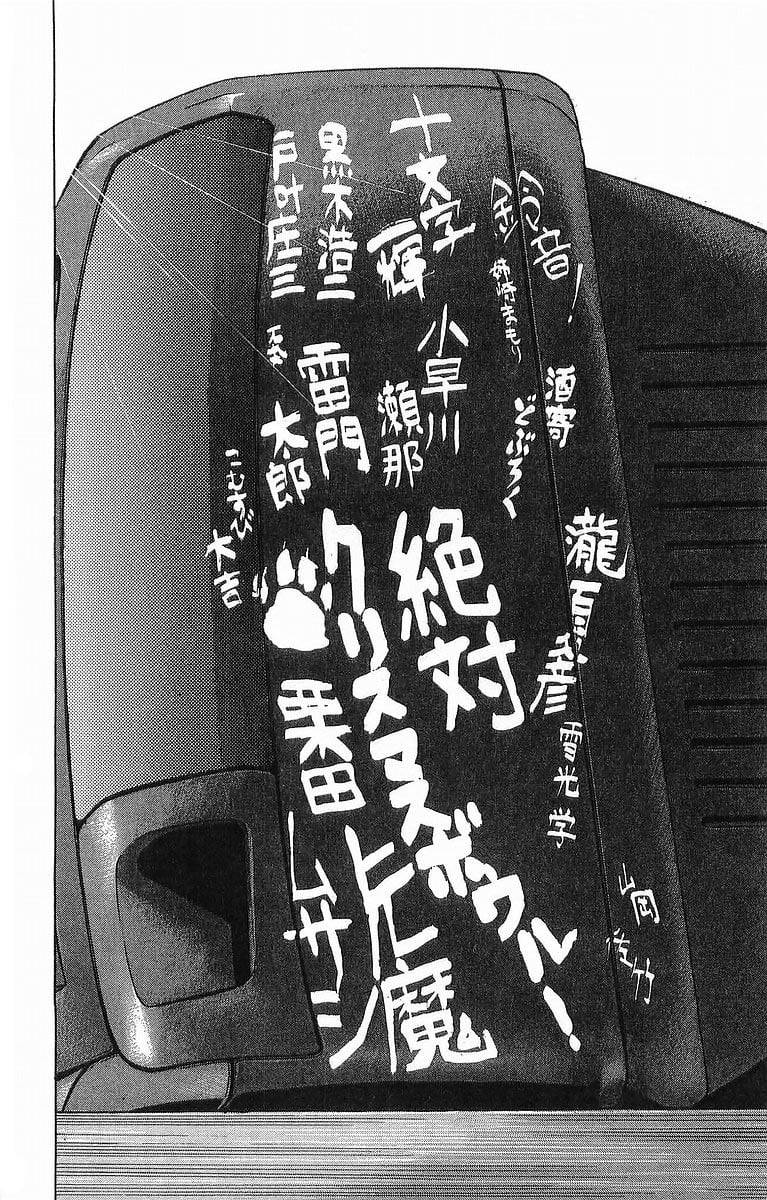 鈴音!
姉崎まもり
酒寄
どぶろく
瀧夏彦
雪光学
山岡
佐竹
十文字
一輝
小早川
瀬那
絶対
クリスマスボウル!
黒木浩二
戸叶庄三
雷門
太郎
こむすび
大吉
栗田
ムサシ
ヒル魔